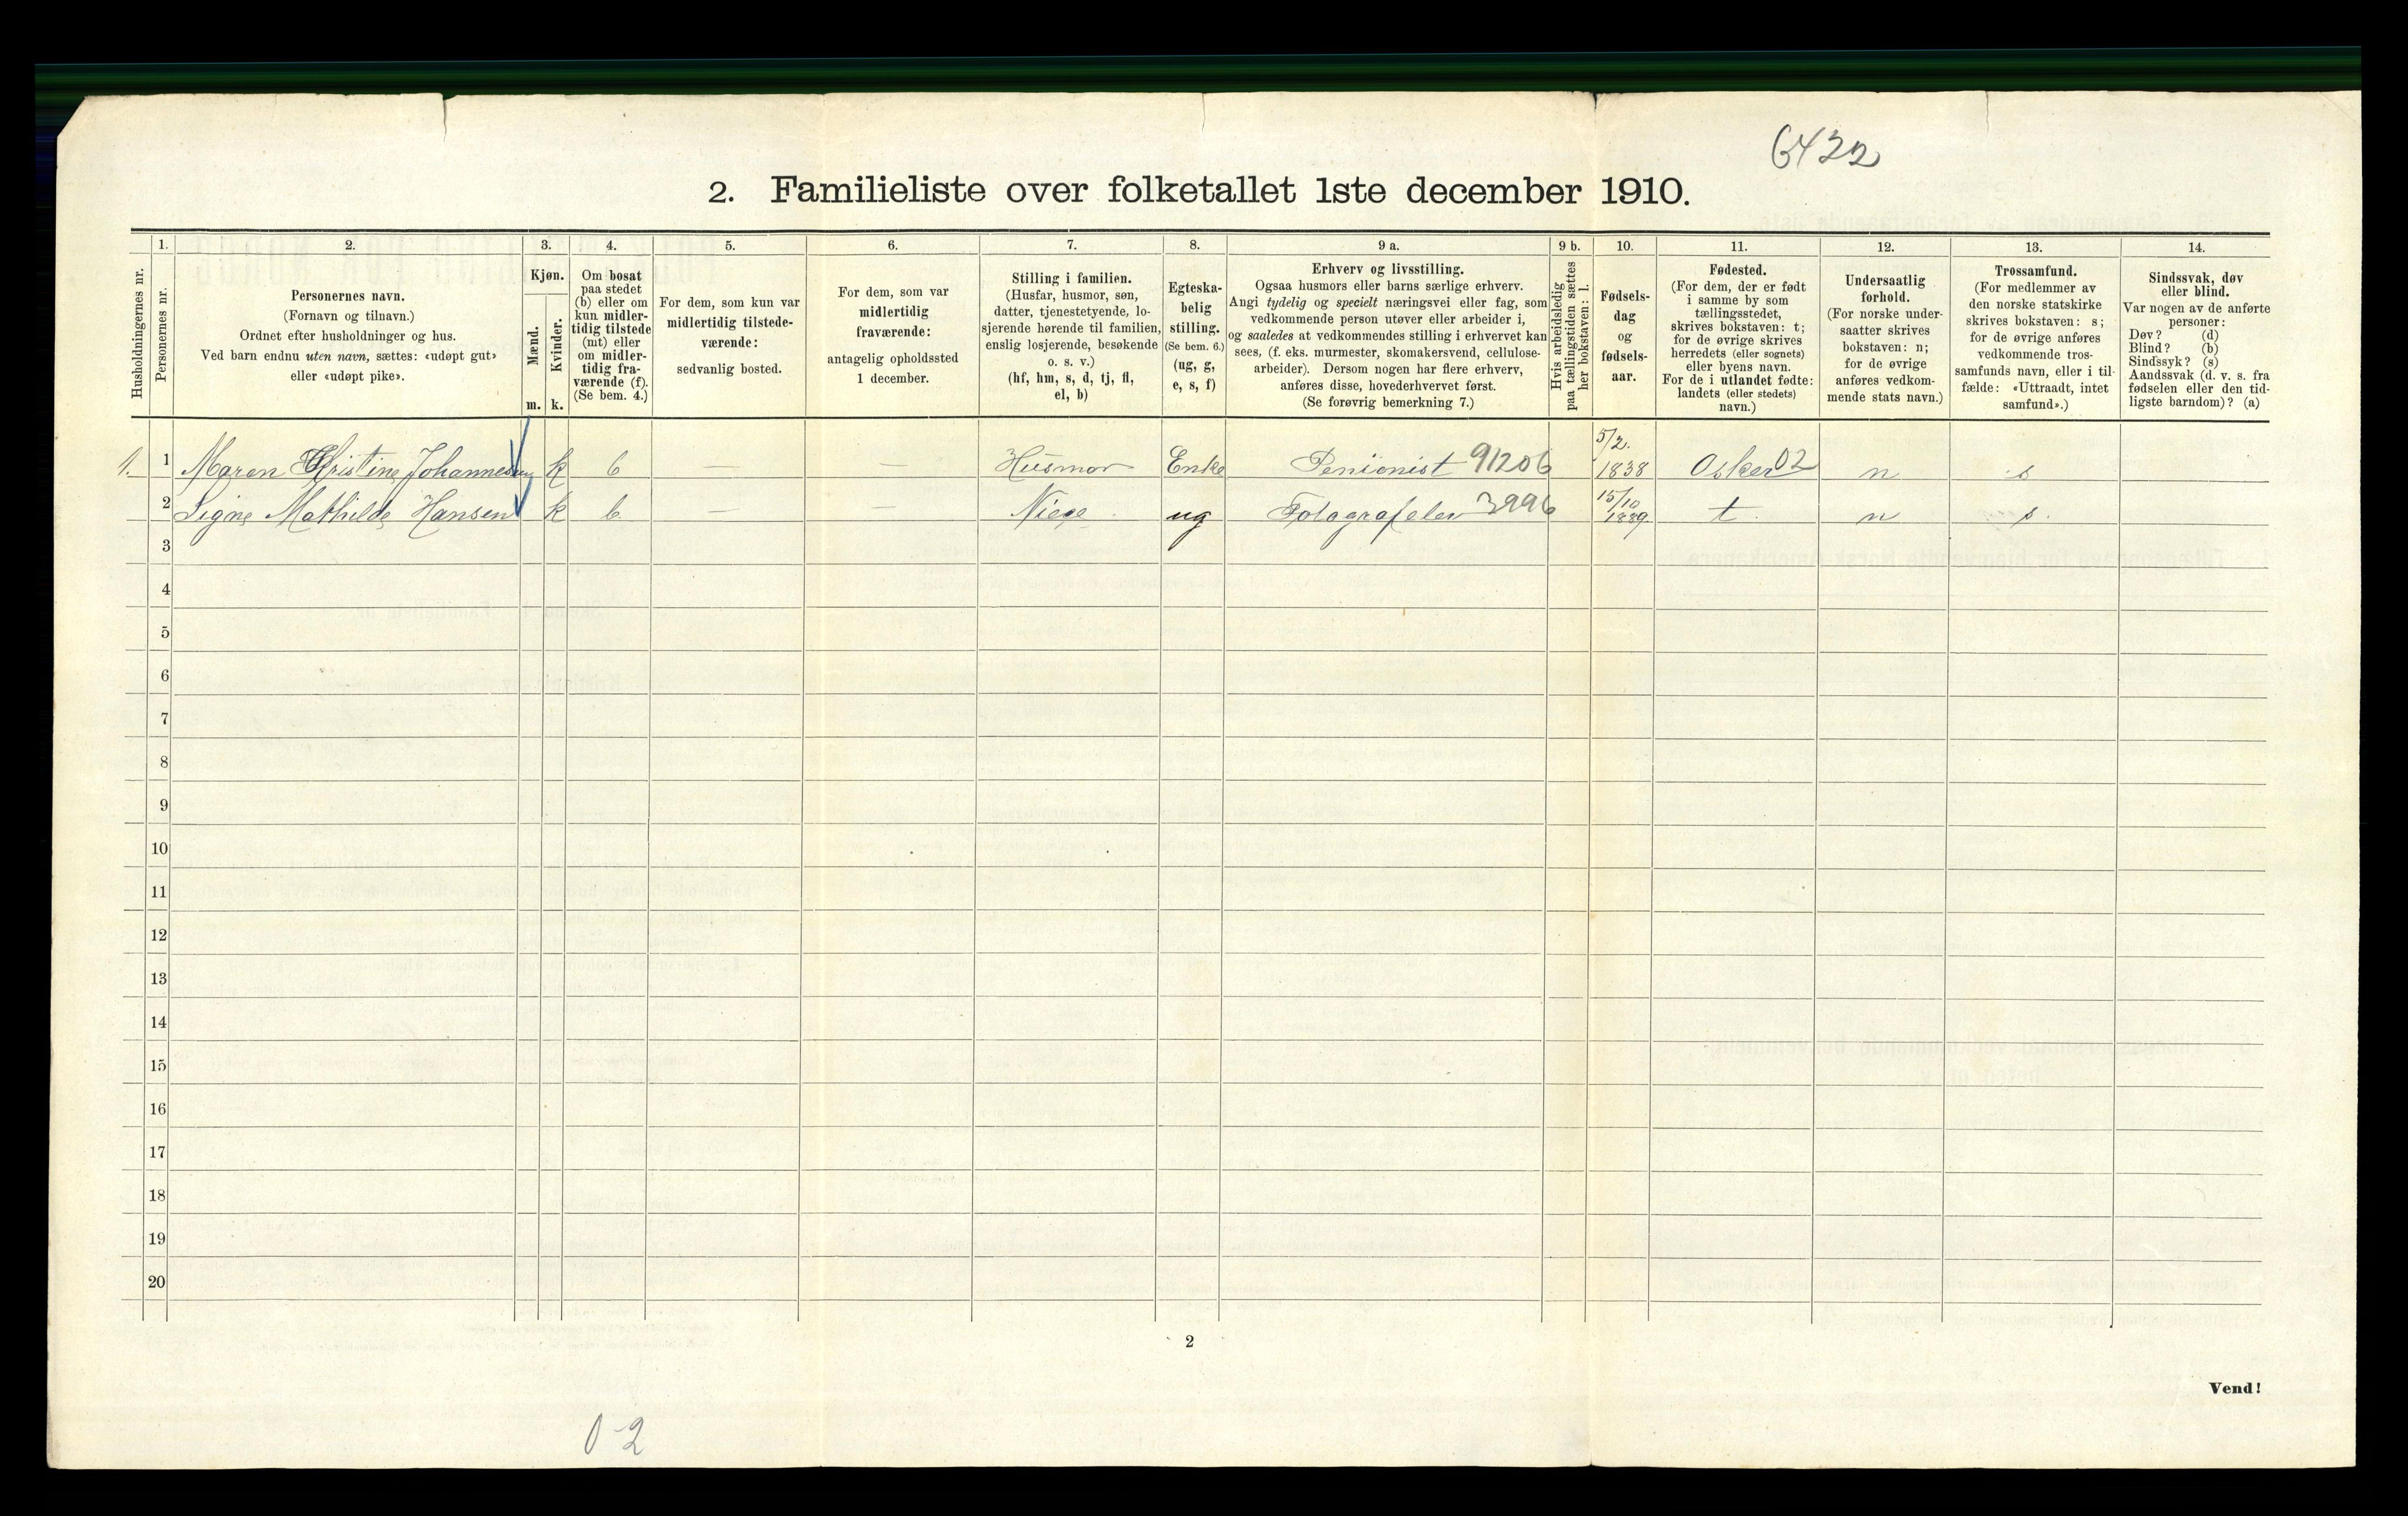 6422
2. Familieliste over folketallet 1ste december 1910.
Husholdningernes nr.
1.
Personernes nr.
2.
Personernes navn.
(Fornavn og tilnavn.)
Ordnet efter husholdninger og hus.
Ved barn endnu uten navn, sættes: «udøpt gut»
eller «udøpt pike».
3.
Kjøn.
Mænd.
Kvinder.
m. k.
4.
Om bosat
paa stedet
(b) eller om
kun midler-
tidig tilstede
(mt) eller
om midler-
tidig fra-
værende (f).
(Se bem. 4.)
5.
For dem, som kun var
midlertidig tilstede-
værende:
sedvanlig bosted.
6.
For dem, som var
midlertidig
fraværende:
antagelig opholdssted
1 december.
7.
Stilling i familien.
(Husfar, husmor, søn,
datter, tjenestetyende, lo-
sjerende hørende til familien,
enslig losjerende, besøkende
o. s. v.)
(hf, hm, s, d, tj, fl,
el, b)
8.
Egteska-
belig
stilling.
(Se bem. 6.)
(ug, g,
e, s, f)
9 a.
Erhverv og livsstilling.
Ogsaa husmors eller barns særlige erhverv.
Angi tydelig og specielt næringsvei eller fag, som
vedkommende person utøver eller arbeider i,
og saaledes at vedkommendes stilling i erhvervet kan
sees, (f. eks. murmester, skomakersvend, cellulose-
arbeider). Dersom nogen har flere erhverv,
anføres disse, hovederhvervet først.
(Se forøvrig bemerkning 7.)
9 b.
Hvis arbeidsledig
paa tællingstiden sættes
her bokstaven: l.
10.
Fødsels-
dag
og
fødsels-
aar.
11.
Fødested.
(For dem, der er født
i samme by som
tællingsstedet,
skrives bokstaven: t;
for de øvrige skrives
herredets (eller sognets)
eller byens navn.
For de i utlandet fødte:
landets (eller stedets)
navn.)
12.
Undersaatlig
forhold.
(For norske under-
saatter skrives
bokstaven: n;
for de øvrige
anføres vedkom-
mende stats navn.)
13.
Trossamfund.
(For medlemmer av
den norske statskirke
skrives bokstaven: s;
for de øvrige anføres
vedkommende tros-
samfunds navn, eller i til-
fælde: «Uttraadt, intet
samfund».)
14.
Sindssvak, døv
eller blind.
Var nogen av de anførte
personer:
Døv? (d)
Blind? (b)
Sindssyk? (s)
Aandssvak (d. v. s. fra
fødselen eller den tid-
ligste barndom)? (a)
1. 1 Maren Kristine Johannesen k b — — Husmor Enke Penionist 91206 5/2. 1838 Asker 02 n s
2 Signe Mathilde Hansen k b — — Niese ug Fotografelev 3996 15/10 1889 t. n s.
3
4
5
6
7
8
9
10
11
12
13
14
15
16
17
18
19
20
2
Vend!
0-2